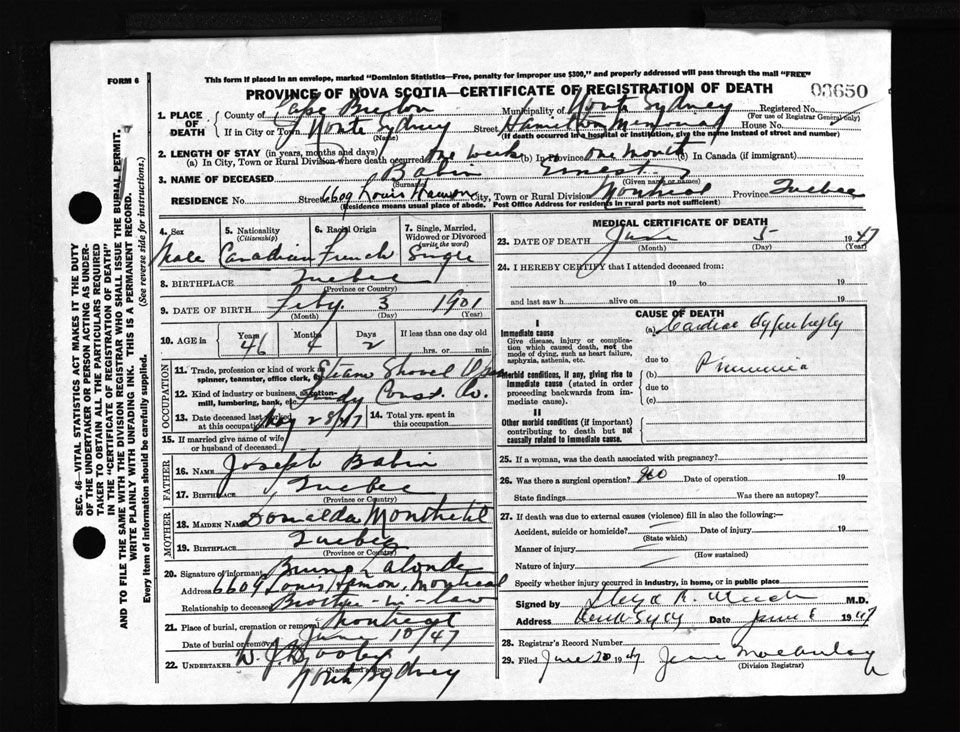 FORM 6
This form if placed in an envelope, marked "Dominion Statistics—Free, penalty for improper use $300," and properly addressed will pass through the mail "FREE"
PROVINCE OF NOVA SCOTIA—CERTIFICATE OF REGISTRATION OF DEATH
03650
1. PLACE OF DEATH
County of Cape Breton Municipality of North Sydney Registered No.
(For use of Registrar General only)
If in City or Town North Sydney Street Hamilton Memorial House No.
(Name) (If death occurred in a hospital or institution, give the name instead of street and number)
2. LENGTH OF STAY (in years, months and days)
(a) In City, Town or Rural Division where death occurred One week (b) In Province One Month (c) In Canada (if immigrant)
3. NAME OF DECEASED Babin Ernest
(Surname) (Given name or names)
RESIDENCE No. Street 6609 Louis Hemon City, Town or Rural Division Montreal Province Quebec
(Residence means usual place of abode. Post Office Address for residents in rural parts not sufficient)
4. Sex 5. Nationality (Citizenship) 6. Racial Origin 7. Single, Married, Widowed or Divorced (write the word)
Male Canadian French Single
8. BIRTHPLACE Quebec
(Province or Country)
9. DATE OF BIRTH Feby. 3 1901
(Month) (Day) (Year)
10. AGE in Years Months Days If less than one day old
46 4 2 hrs. or min.
OCCUPATION
11. Trade, profession or kind of work as spinner, teamster, office clerk, etc. Steam Shovel
12. Kind of industry or business, as cotton-mill, lumbering, bank, etc. Const. Co.
13. Date deceased last worked at this occupation May 28/47 14. Total yrs. spent in this occupation
15. If married give name of wife or husband of deceased
FATHER
16. NAME Joseph Babin
17. BIRTHPLACE Quebec
(Province or Country)
MOTHER
18. MAIDEN NAME Donalda
19. BIRTHPLACE Quebec
(Province or Country)
20. Signature of informant Bruno Lalonde
Address 6609 Louis Hemon, Montreal
Relationship to deceased Brother-in-law
21. Place of burial, cremation or removal Montreal
Date of burial or removal June 10/47
22. UNDERTAKER
(Name and address)
North Sydney
MEDICAL CERTIFICATE OF DEATH
23. DATE OF DEATH June 5 1947
(Month) (Day) (Year)
24. I HEREBY CERTIFY that I attended deceased from:
19 to 19
and last saw h alive on 19
CAUSE OF DEATH
I
Immediate cause
Give disease, injury or complication which caused death, not the mode of dying, such as heart failure, asphyxia, asthenia, etc.
(a) Cardiac
due to
Morbid conditions, if any, giving rise to immediate cause (stated in order proceeding backwards from immediate cause).
(b) Pneumonia
due to
(c)
II
Other morbid conditions (if important) contributing to death but not causally related to immediate cause.
25. If a woman, was the death associated with pregnancy?
26. Was there a surgical operation? No Date of operation 19
State findings Was there an autopsy?
27. If death was due to external causes (violence) fill in also the following:—
Accident, suicide or homicide? Date of injury 19
(State which)
Manner of injury
(How sustained)
Nature of injury
Specify whether injury occurred in industry, in home, or in public place
Signed by M.D.
Address Date June 1947
28. Registrar's Record Number
29. Filed June 20 1947 Jean
(Division Registrar)
SEC. 46—VITAL STATISTICS ACT MAKES IT THE DUTY
OF THE UNDERTAKER OR PERSON ACTING AS UNDER-
TAKER TO OBTAIN ALL THE PARTICULARS REQUIRED
IN THE "CERTIFICATE OF REGISTRATION OF DEATH"
AND TO FILE THE SAME WITH THE DIVISION REGISTRAR WHO SHALL ISSUE THE BURIAL PERMIT.
WRITE PLAINLY WITH UNFADING INK. THIS IS A PERMANENT RECORD.
Every item of information should be carefully supplied. (See reverse side for instructions.)